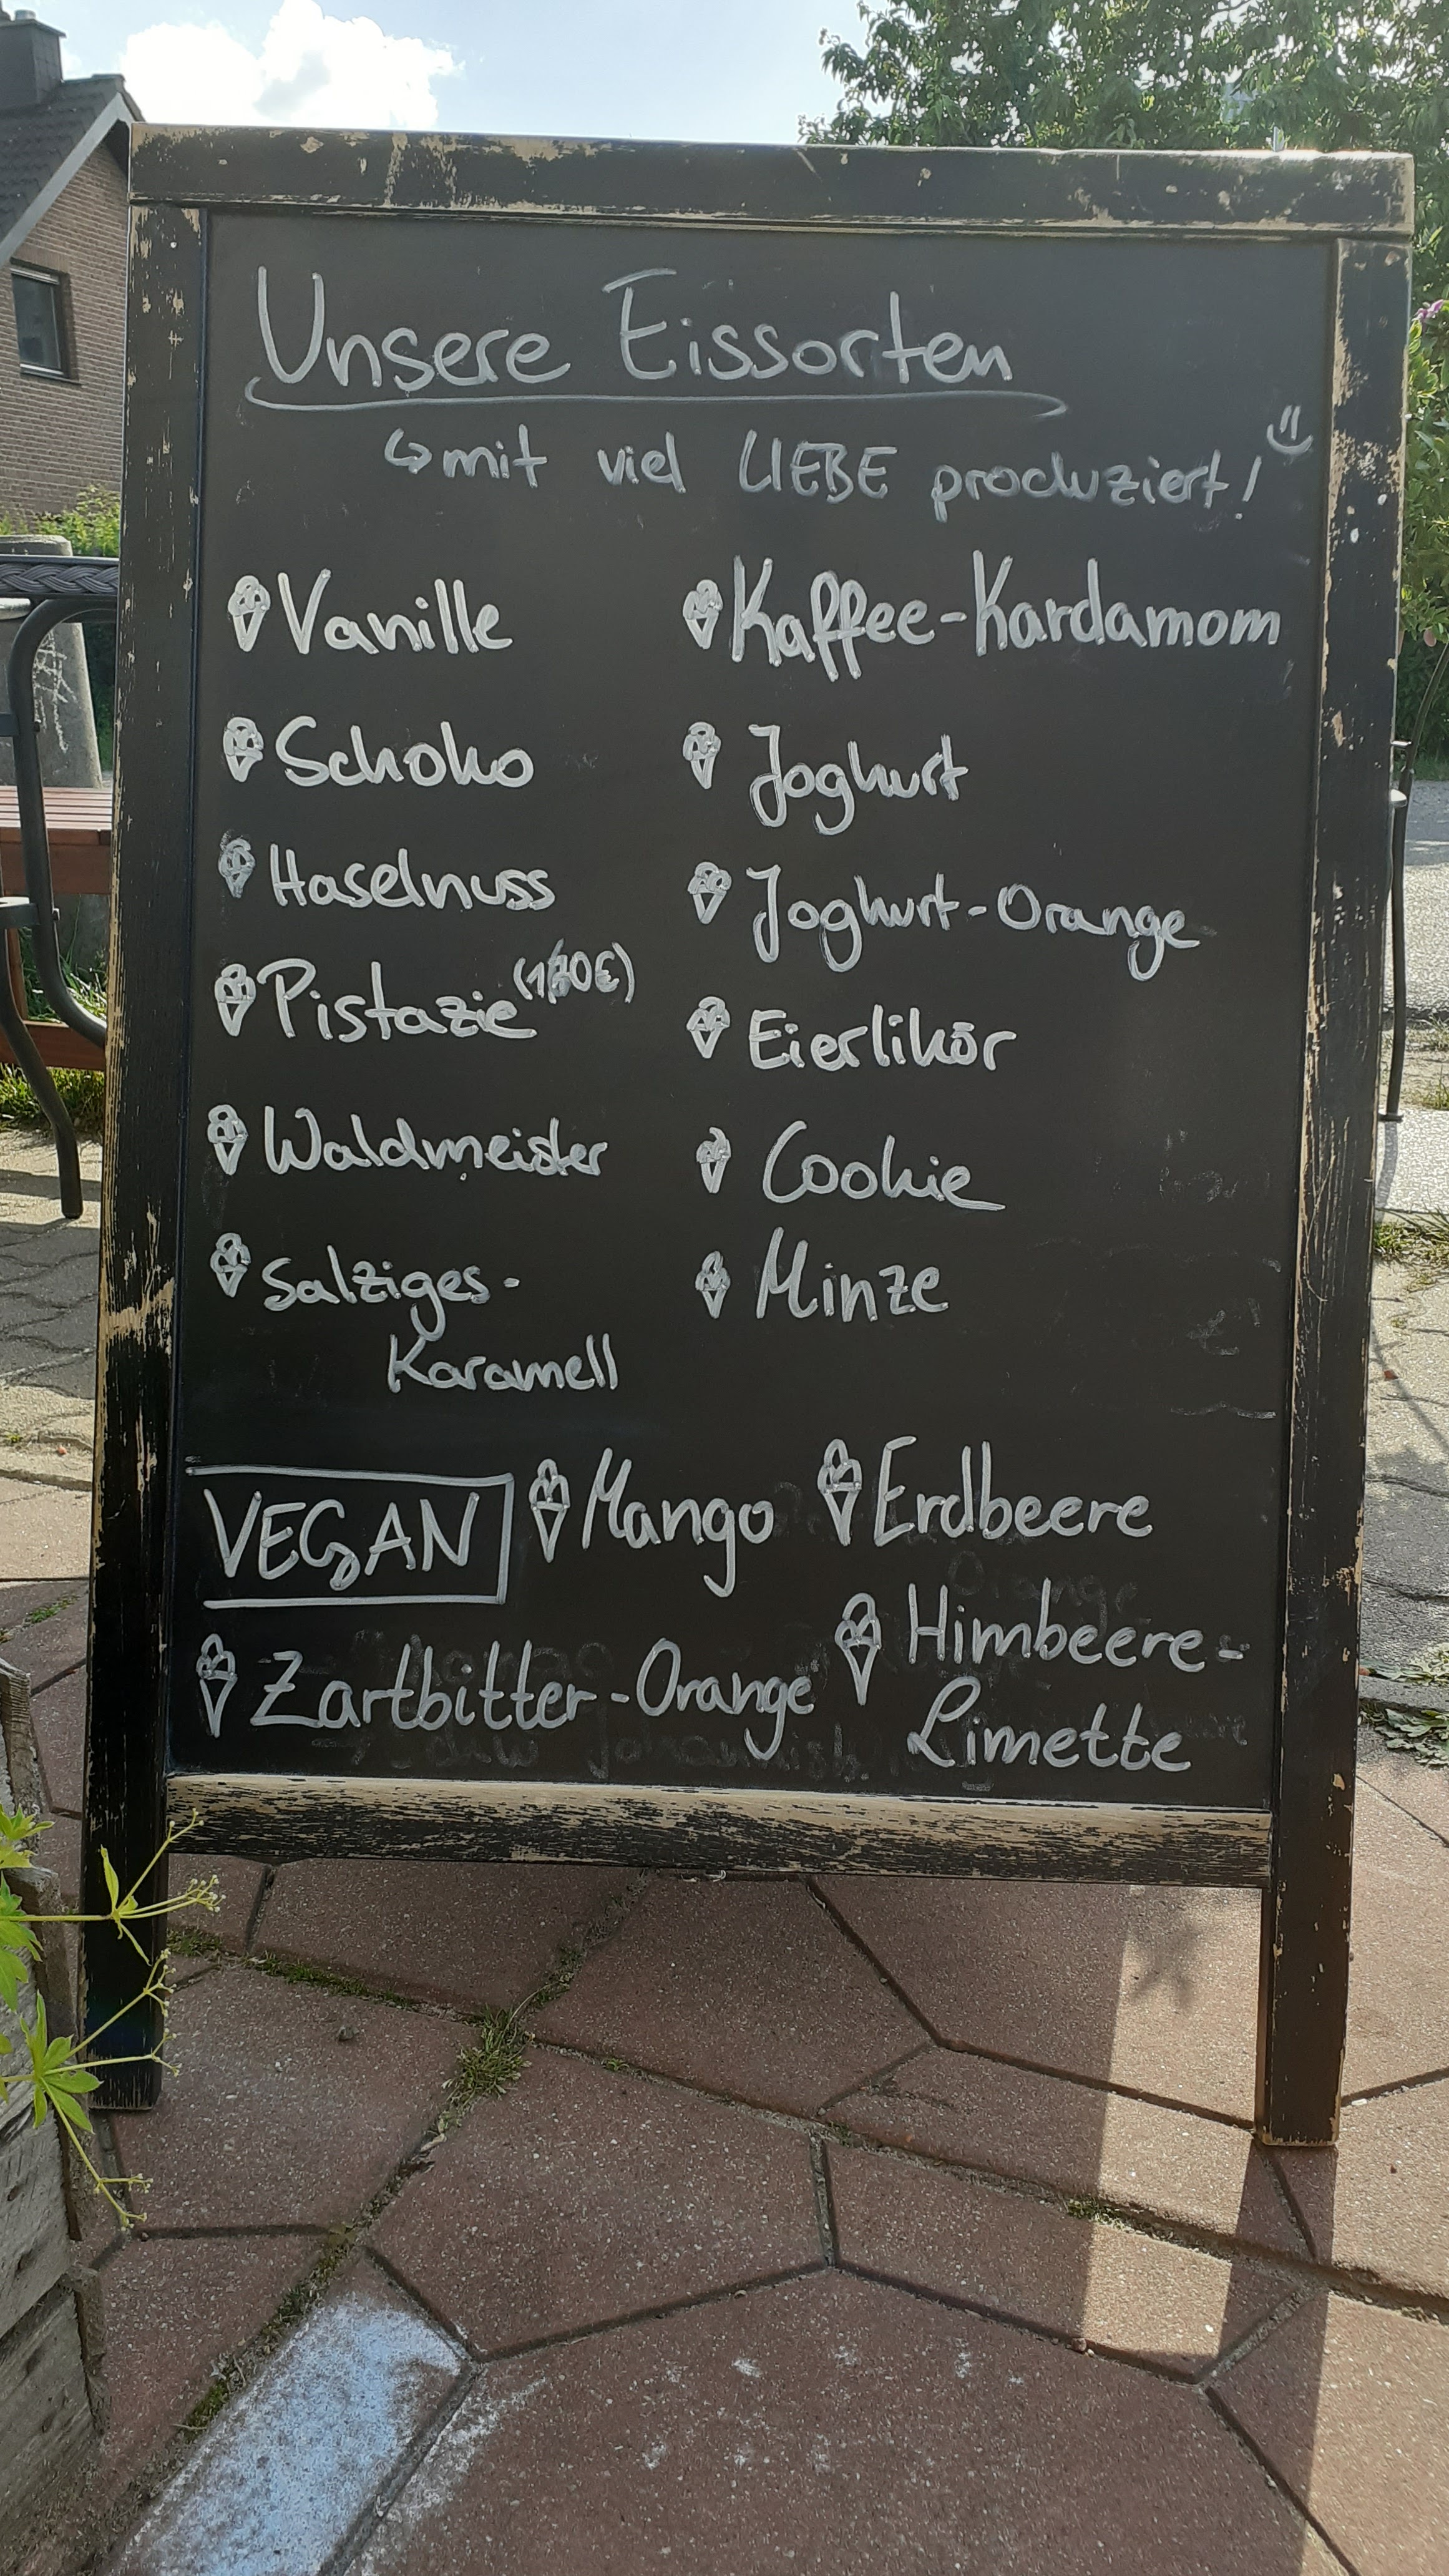 Unsere Eissorten
↳ mit viel LIEBE produziert!
Vanille
Schoko
Haselnuss
Pistazie
Waldmeister
Salziges-
Karamell
Kaffee-Kardamom
Joghurt
Joghurt-Orange
Eierlikör
Cookie
Minze
VEGAN
Mango
Erdbeere
Zartbitter-Orange
Himbeere-
Limette